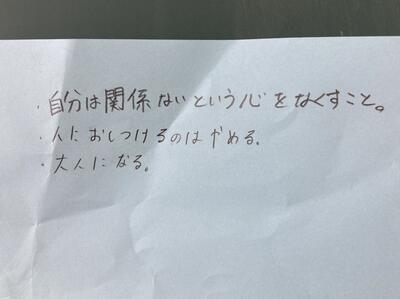 ・自分は関係ないという心をなくすこと。
・人におしつけるのはやめる。
・大人になる。